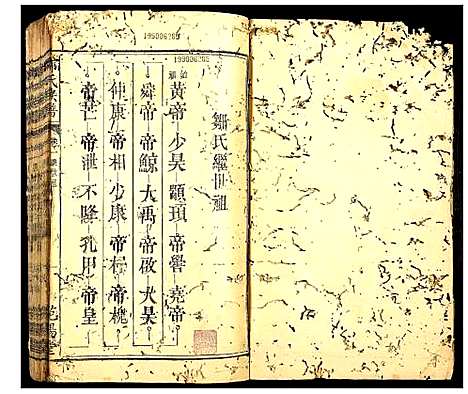 199006265
199006265
鄒氏繼世祖
始祖
黃帝 少昊 顓頊 帝嚳 堯帝
舜帝 帝鯀 大禹 帝啟 大昊
仲康 帝相 少康 帝杼 帝槐
帝芒 帝泄 不降 孔甲 帝皇
范陽堂